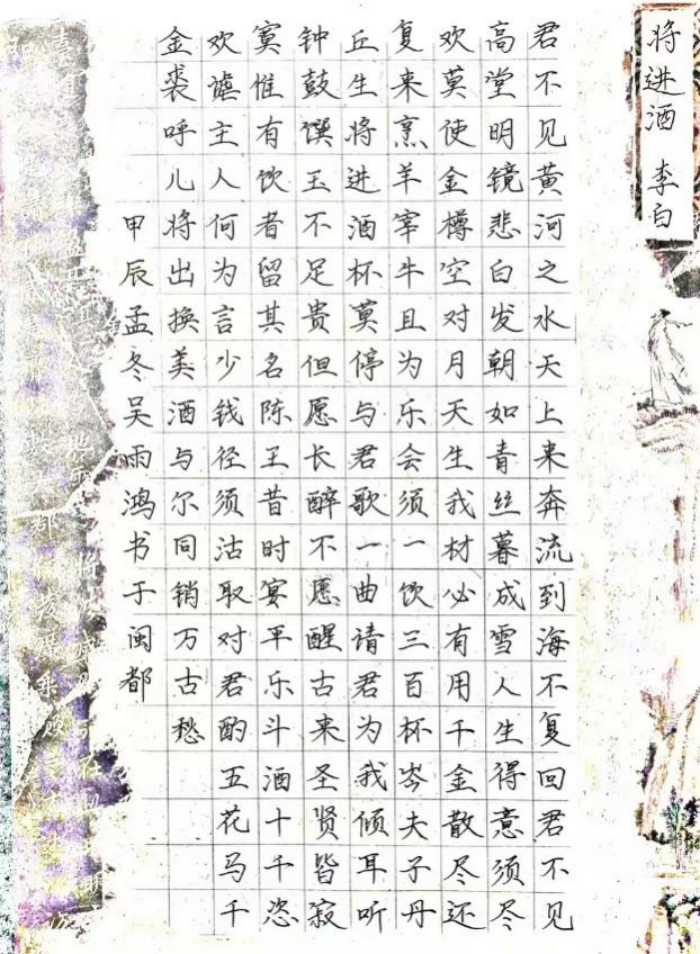 将进酒 李白
君不见黄河之水天上来奔流到海不复回君不见
高堂明镜悲白发朝如青丝暮成雪人生得意须尽
欢莫使金樽空对月天生我材必有用千金散尽还
复来烹羊宰牛且为乐会须一饮三百杯岑夫子丹
丘生将进酒杯莫停与君歌一曲请君为我倾耳听
钟鼓馔玉不足贵但愿长醉不愿醒古来圣贤皆寂
寞惟有饮者留其名陈王昔时宴平乐斗酒十千恣
欢谑主人何为言少钱径须沽取对君酌五花马千
金裘呼儿将出换美酒与尔同销万古愁
甲辰孟冬吴雨鸿书于闽都